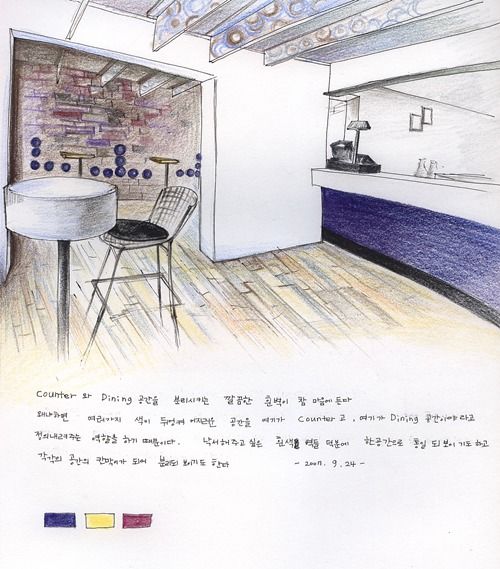 Counter 와 Dining 공간을 분리시키는 깔끔한 흰벽이 참 마음에 든다
왜냐하면 여러가지 색이 뒤엉켜 어지러운 공간을 여기가 Counter 고, 여기가 Dining 공간이야 라고
정의내려주는 역할을 하기 때문이다. 낙서해주고 싶은 흰색 벽들 덕분에 한공간으로 통일 되 보이기도 하고
각각의 공간의 칸막이가 되어 분리되 보이기도 한다 - 2007. 9. 24 -